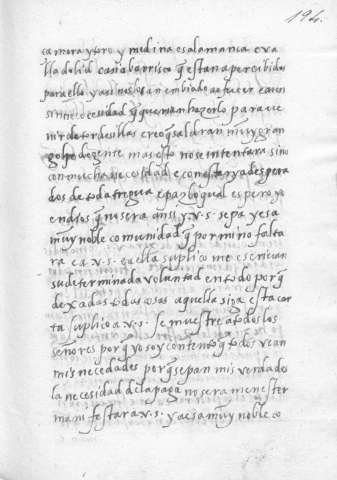 194.
camora y toro y medina e salamanca e va
lladolid cada barrisco q̃ estan apercebidos
para ello y asi nos lo an embiado a ofrecer e aun
sin tiẽ necesidad q̃ quemar hazerlo para ve
nir de tordesillas creo q̃ saldran muy gran
golpe de gente mas esto no se intentara sino
con mucha necesidad e con estar ya despera
dos de toda tregua e paz lo qual espero yo
en dios q̃ no sera ansi y v. s. sepa y esa
muy noble comunidad q̃ por mi no falta
ra e a v. s. e a ella suplico me escrivan
su determinada voluntad en todo porq̃
dexadas todas cosas aquella siga esta car
ta suplico a v. s. se muestre a todos los
señores porq̃ yo soy contento q̃ todos vean
mis necedades porq̃ sepan mis verdades
la necesidad de la paga no sera menester
manifestar a v. s. y a esa muy noble co